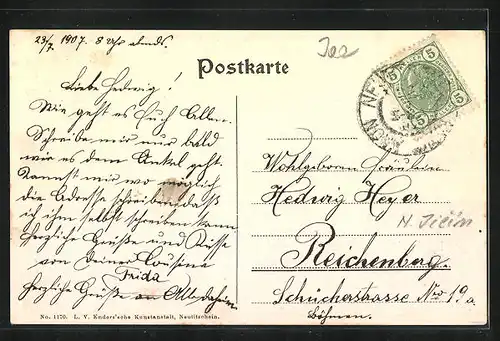 23/7. 1907. 8 Uhr abends.
Liebe Hedwig!
Wie geht es Euch Allen.
Schreibe mir nur bald
wie es dem Onkel geht.
Kannst mir wo möglich
die Adresse schreiben daß
ich ihm selbst schreiben kann
herzliche Grüße und Küsse
von Deiner Cousine
Frida
herzliche Grüße an Alle daheim
No. 1170. L. V. Enders'sche Kunstanstalt, Neutitschein.
Postkarte
5 5
5 5
Wohlgeboren Fräulein
Hedwig Heyer
N. Jičín
Reichenberg.
Schückerstrasse Nro 19a
Böhmen.